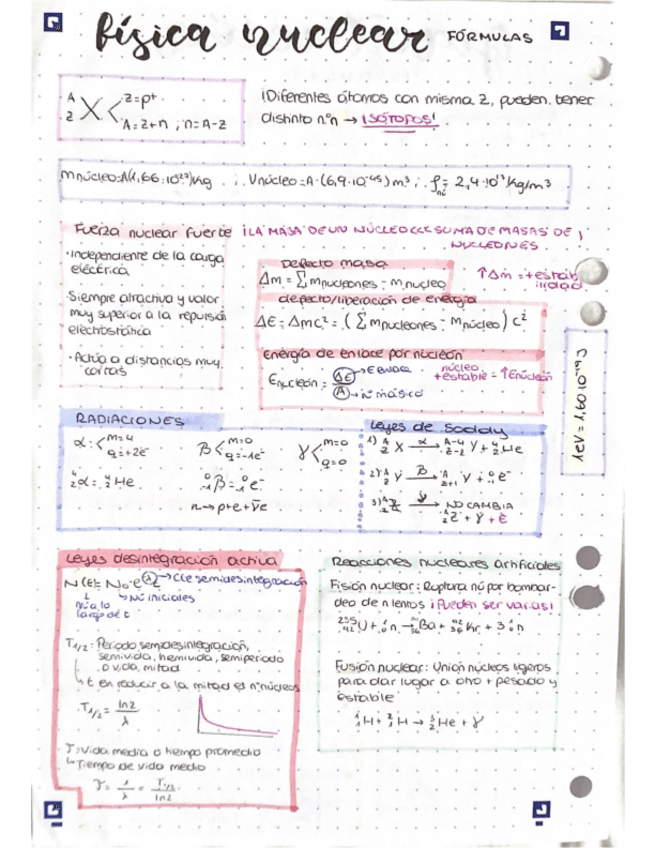 física nuclear FÓRMULAS
A Z X < Z=p+
A=Z+n ; n=A-Z
¡Diferentes átomos con misma Z, pueden tener
distinto nºn → ¡ISÓTOPOS!
Mnúcleo=A(1,66·10⁻²⁷)kg ∴ Vnúcleo=A·(6,9·10⁻⁴⁵) m³ ∴ 2,4·10¹⁷ kg/m³
Fuerza nuclear fuerte
·Independiente de la carga
eléctrica
·Siempre atractiva y valor
muy superior a la repulsión
electrostática
·Actúa a distancias muy
cortas
¡LA MASA DE UN NÚCLEO
SUMA DE MASAS DE
NUCLEONES
Defecto masa
Δm = ∑ mnucleones - mnucleo
↑Δm = +estabilidad
defecto/liberación de energía
ΔE = Δmc² = (∑ mnucleones - mnúcleo) c²
energía de enlace por nucleón
Enucleón = ΔE/A
→ E enlace
→ nº másico
núcleo
+estable = ↑Enucleón
1eV = 1,60·10⁻¹⁹J
RADIACIONES
α: < m=4
q=+2e⁻
β < m=0
q=-1e⁻
γ < m=0
q=0
⁴₂α = ⁴₂He
⁰₋₁β = ⁰₋₁e⁻
n → p+e+ν̄e
Leyes de Soddy
1) A Z X →α A-4 Z-2 Y + ⁴₂He
2) A Z →β A Z+1 Y + ⁰₋₁e⁻
3) A Z →γ NO CAMBIA
Leyes desintegración activa
N(t)= N₀·e
λ → cte semidesintegración
→ Nº iniciales
nº a lo
largo de t
T1/2 = Período semidesintegración,
semivida, hemivida, semiperiodo
o vida mitad
↳ t en reducir a la mitad el nºnúcleos
·T1/2 = ln2/λ
τ: vida media o tiempo promedio
↳ Tiempo de vida medio
τ = 1/λ = T1/2/ln2
Reacciones nucleares artificiales
Fisión nuclear: Ruptura nú por bombar-
deo de n lentos ¡Pueden ser varias!
Fusión nuclear: Unión núcleos ligeros
para dar lugar a otro + pesado y
estable
¹₁H + ²₁H → ³₂He + γ